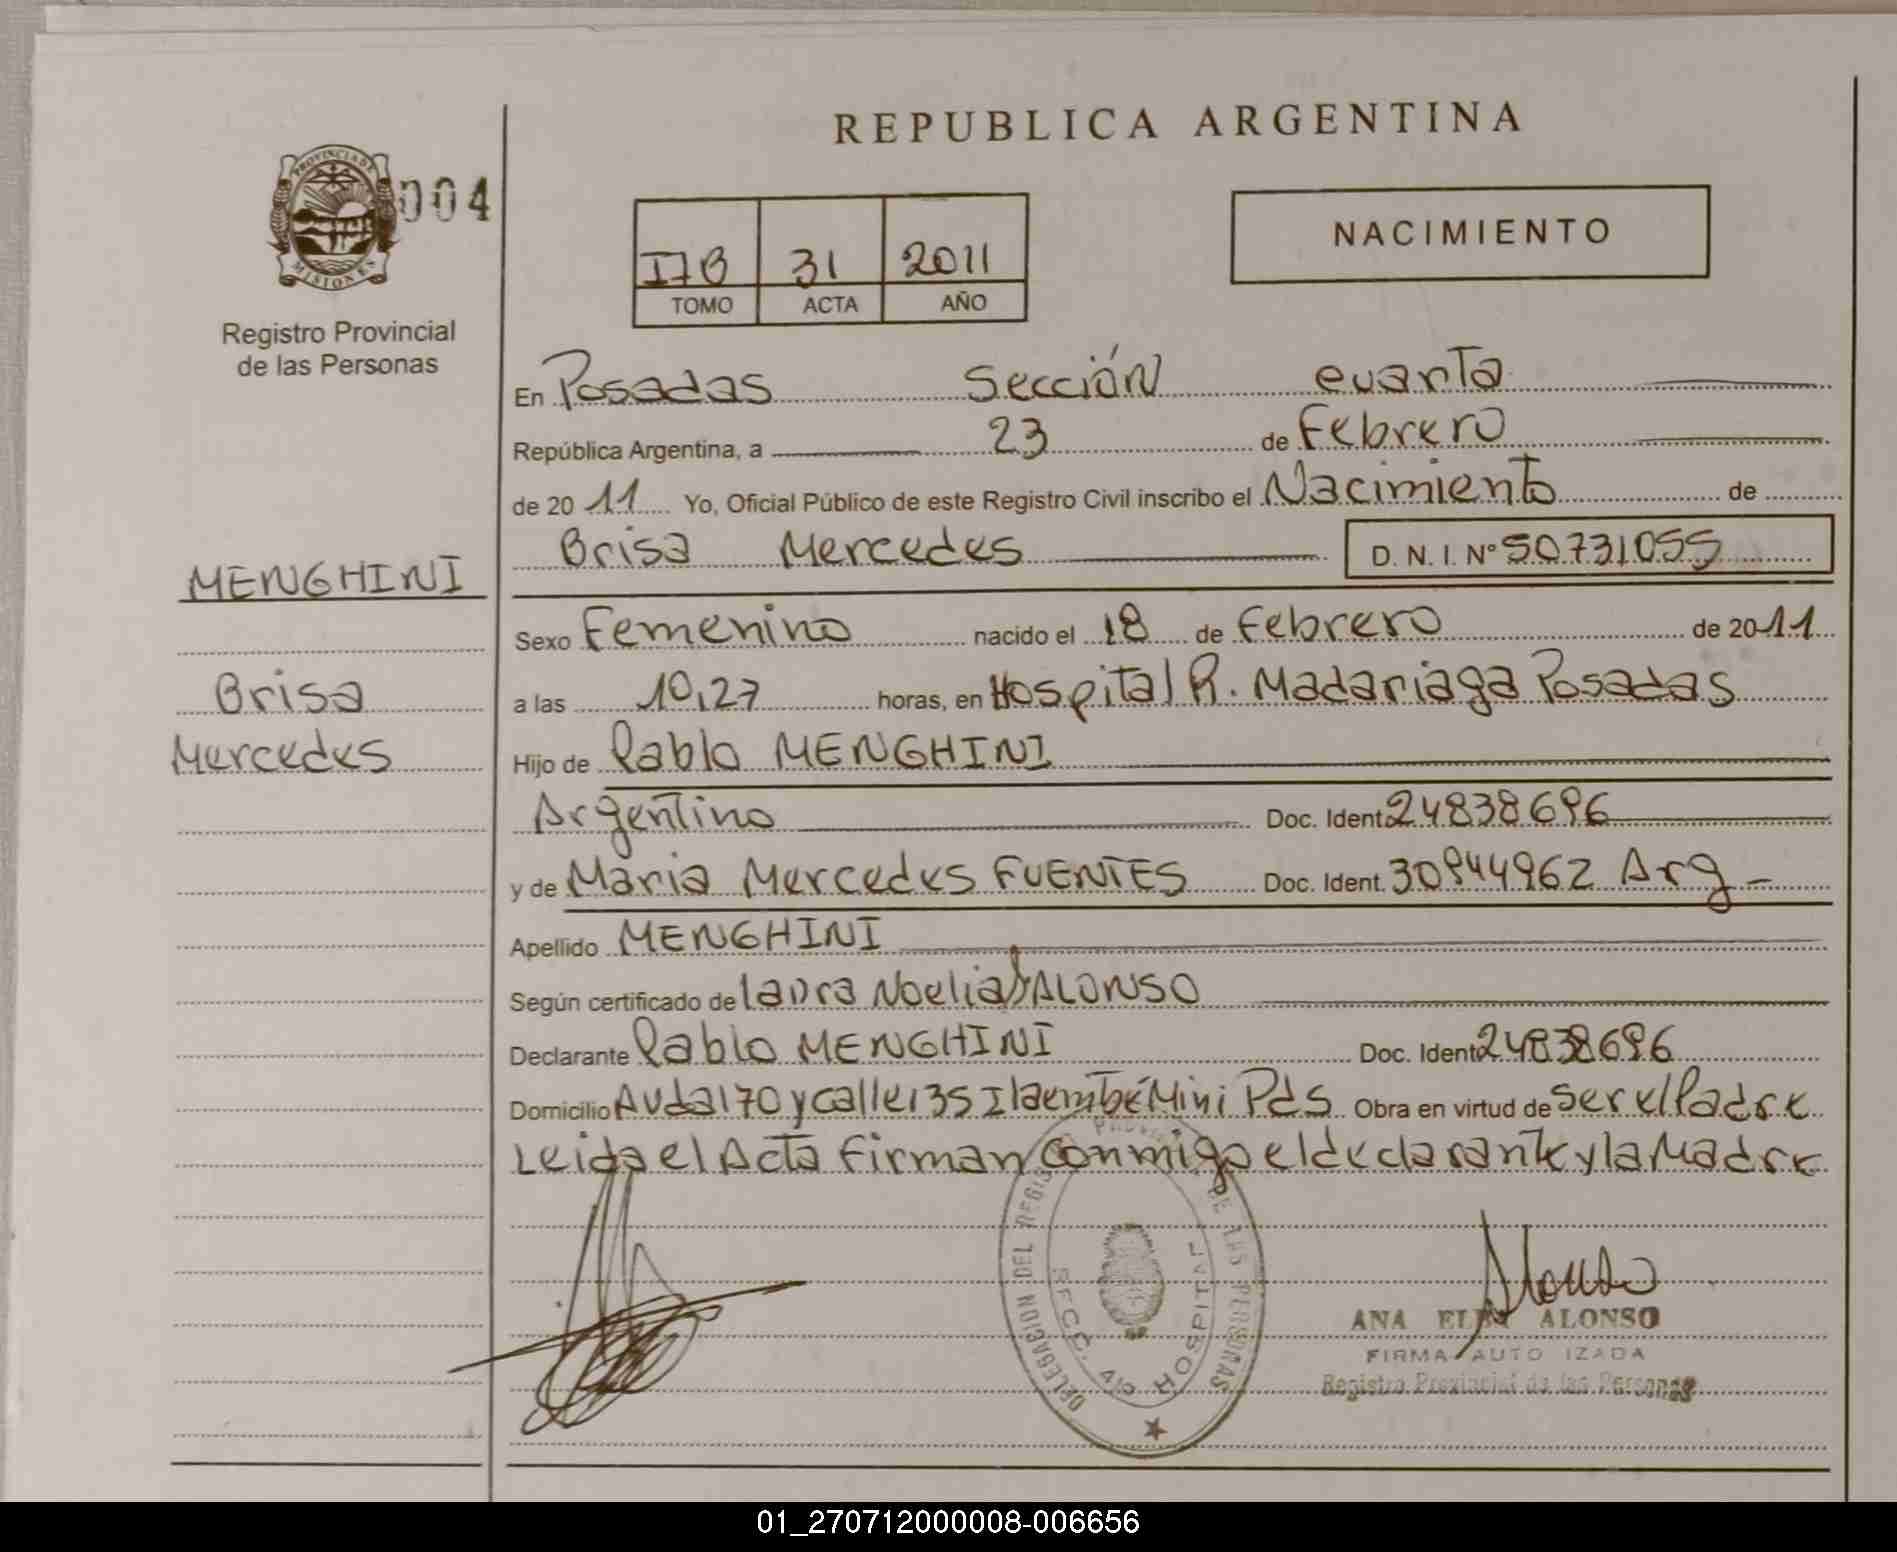 REPUBLICA ARGENTINA
PROVINCIA DE
MISIONES
004
Registro Provincial
de las Personas
I7B 31 2011
TOMO ACTA AÑO
NACIMIENTO
En Posadas Sección cuarta
República Argentina, a 23 de Febrero
de 20 11 Yo, Oficial Público de este Registro Civil inscribo el Nacimiento de
Brisa Mercedes D. N. I. Nº 50.731.055
MENGHINI
Brisa
Mercedes
Sexo Femenino nacido el 18 de Febrero de 20 11
a las 10,27 horas, en Hospital R. Madariaga Posadas
Hijo de Pablo MENGHINI
Argentino Doc. Ident. 24838696
y de Maria Mercedes FUENTES Doc. Ident. 30944962 Arg_
Apellido MENGHINI
Según certificado de Laura Noelia ALONSO
Declarante Pablo MENGHINI Doc. Ident. 24838696
Domicilio Avda 170 y calle 135 Itaembé Mini Pds Obra en virtud de ser el Padre
Leida el Acta Firman conmigo el declarante y la Madre
DELEGACION DEL REGISTRO PROVINCIAL DE LAS PERSONAS
SECC. 4º HOSPITAL
Alonso
ANA ELBA ALONSO
FIRMA AUTO IZADA
Registro Provincial de las Personas
01_270712000008-006656